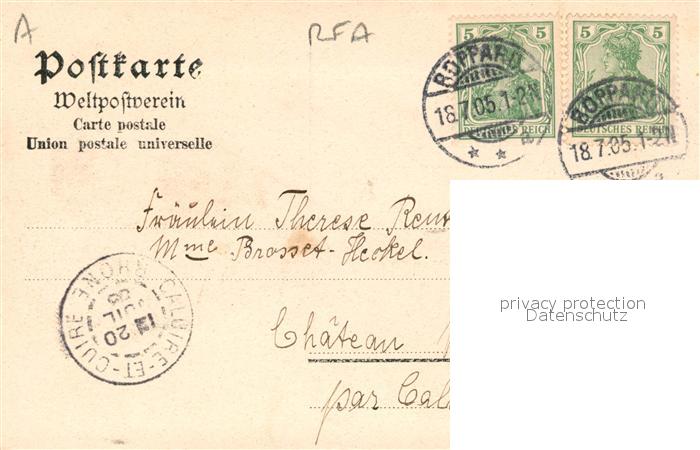 A
RFA
Postkarte
Weltpostverein
Carte postale
Union postale universelle
5 5
5 5
DEUTSCHES REICH
DEUTSCHES REICH
BOPPARD
18.7.05.1-2N
BOPPARD
18.7.05.1-2N
Fräulein Therese
Mme Brosset-Heckel.
Château
par Cal
CALUIRE-ET-CUIRE RHONE
20
JUIL
05
privacy protection
Datenschutz